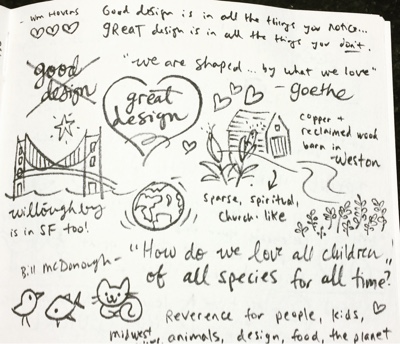 - Wm Hovens
Good design is in all the things you notice...
great design is in all the things you don't.
good
design
great
design
"we are shaped... by what we love"
- goethe
copper +
reclaimed wood
barn in
- Weston
willoughby
is in SF too!
sparse, spiritual,
church. like
Bill McDonough -
"How do we love all children
of all species for all time?"
Reverence for people, kids,
midwest animals, design, food, the planet